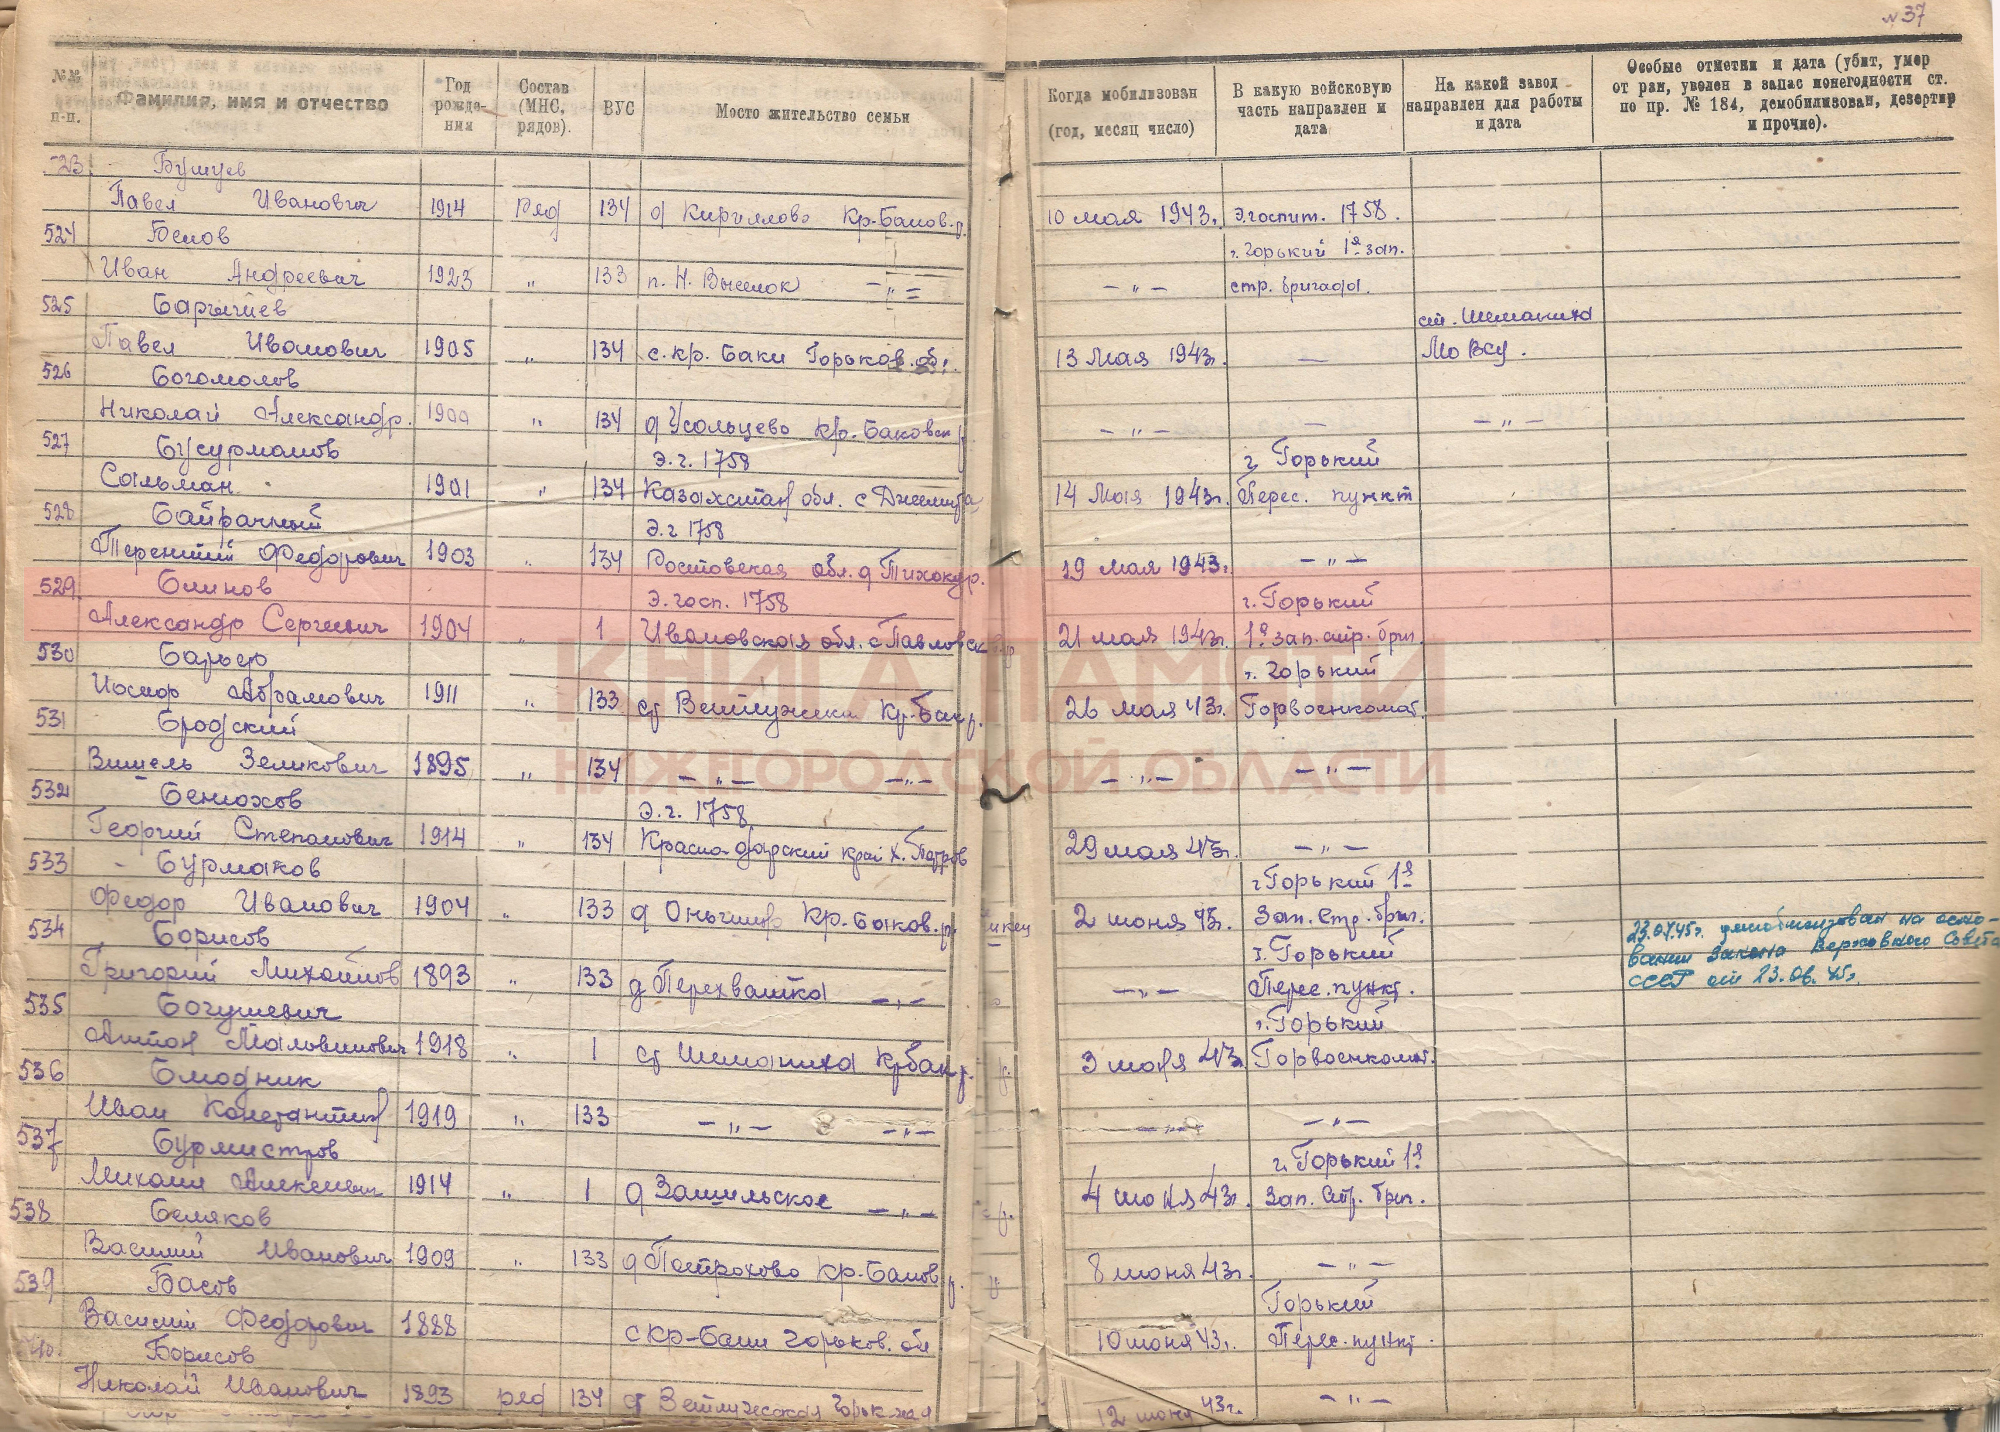 № 37
№№ п-п. Фамилия, имя и отчество Год рожде- ния Состав (МНС, рядов). ВУС Мосто жительство семьи Когда мобилизован (год, месяц число) В какую войсковую часть направлен и дата На какой завод направлен для работы и дата Особые отметки и дата (убит, умер от ран, уволен в запас понегодности ст. по пр. № 184, демобилизован, дезертир и прочие).
523 Бушуев
Павел Иванович 1914 Ряд 134 д Кириллово Кр-Баков. р. 10 мая 1943г. Э.госпит. 1758.
524 Белов г. Горький 1й зап.
Иван Андреевич 1923 " 133 п. Н. Выселок - " - - " - стр. бригада.
525 Барышев ст. Шеманиха
Павел Иванович 1905 " 134 с. Кр. Баки Горьков. об. 13 мая 1943г. — Мовсу.
526 Богомолов
Николай Александр. 1900 " 134 д Усольцево Кр. Баковск р. - " - — - " -
527 Бусурманов Э.г. 1758 г. Горький
Сальман 1901 " 134 Казахстан обл. с 14 мая 1943г. Перес. пункт
528 Байрачный Э.г 1758
Терентий Федорович 1903 " 134 Ростовская обл. д 19 мая 1943г. - " -
529 Блинов Э. госп. 1758 г. Горький
Александр Сергеевич 1904 " 1 Ивановская обл. с Павловск 21 мая 1943г. 1й зап. стр. бриг.
530 г. Горький
Иосиф Абрамович 1911 " 133 ст Ветлужская Кр-Бак р. 26 мая 43г. Горвоенкомат.
531 Бродский
Зеликович 1895 " 134 - " - - " - - " - - " -
532 Бенюхов Э.г. 1758
Георгий Степанович 1914 " 134 Красно-дарский край х. 29 мая 43г. - " -
533 Бурмаков г Горький 1й
Федор Иванович 1904 " 133 д Кр-Баков. р. 2 июня 43г. Зап. Стр. бриг.
534 Борисов г. Горький 23.07.45г. демобилизован на осно-
Григорий Михайлов 1893 " 133 д Перехватка - " - - " - Перес. пункт. вании Закона Верховного Совета
СССР от 23.06.45г.
535 Богушевич г. Горький
Антон 1918 " 1 ст Шеманиха Кр бак р. 3 июня 43г. Горвоенкомат.
536 Блюдник
Иван Константинов 1919 " 133 - " - - " - - " - - " -
537 Бурмистров г. Горький 1й
Михаил Алексеевич 1914 " 1 д Зашильское - " - 4 июня 43г. Зап. Стр. бриг.
538 Беляков
Василий Иванович 1909 " 133 д Кр-Баков р. 8 июня 43г. - " -
539 Басов Горький
Василий Федорович 1888 с Кр-Баки Горьков. обл 10 июня 43г. Перес. пункт.
540. Борисов
Николай Иванович 1893 ряд 134 ст Ветлужская 12 июня 43г. - " -
КНИГА ПАМЯТИ
НИЖЕГОРОДСКОЙ ОБЛАСТИ